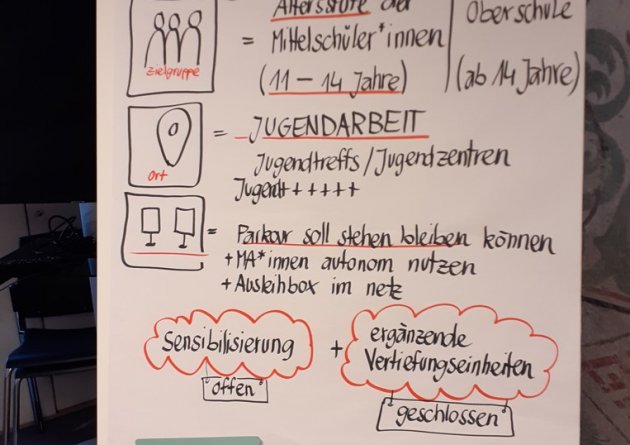 Altersstufe der
= Mittelschüler*innen
(11 – 14 Jahre)
Oberschule
(ab 14 Jahre)
Zielgruppe
= JUGENDARBEIT
Jugendtreffs / Jugendzentren
Ort
= Parkour soll stehen bleiben können
+ MA*innen autonom nutzen
+ Ausleihbox im netz
Sensibilisierung
offen
+
ergänzende
Vertiefungseinheiten
geschlossen